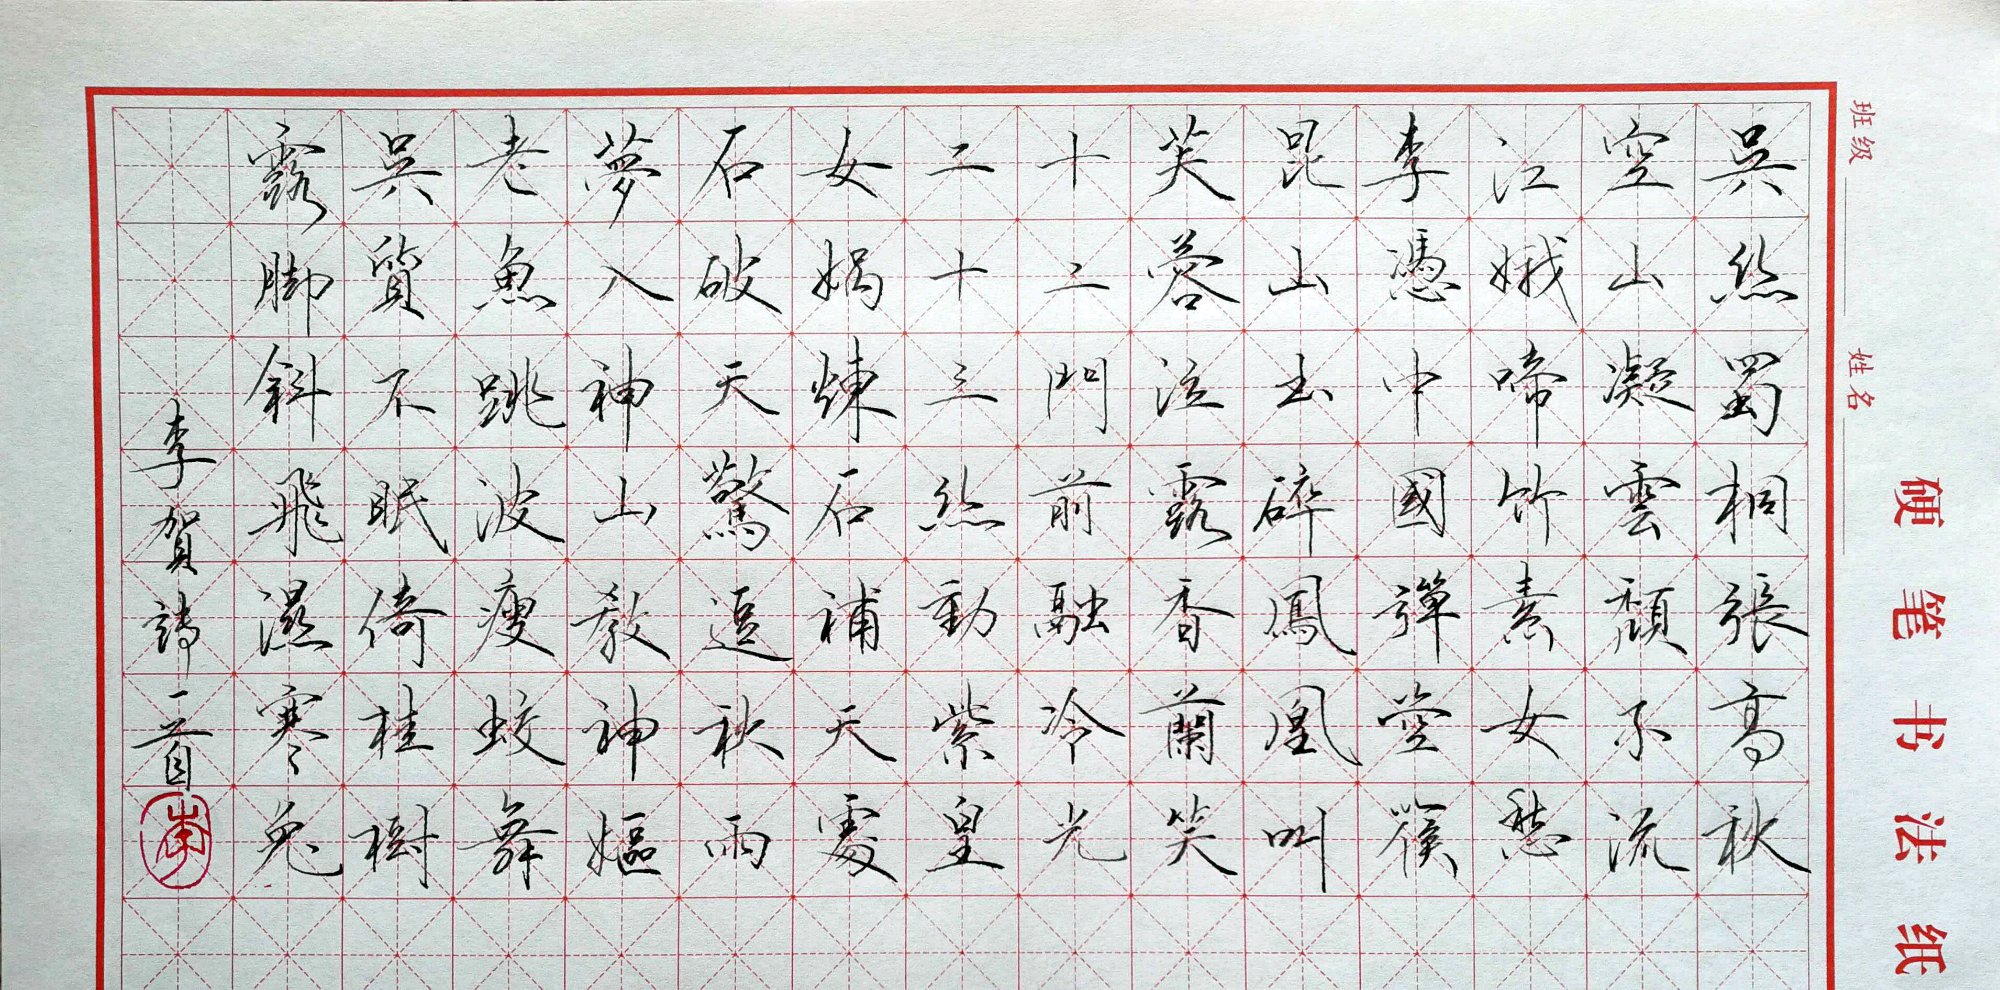 硬笔书法纸
班级 姓名
吳絲蜀桐張高秋
空山凝雲頹不流
江娥啼竹素女愁
李憑中國彈箜篌
昆山玉碎鳳凰叫
芙蓉泣露香蘭笑
十二門前融冷光
二十三絲動紫皇
女媧煉石補天處
石破天驚逗秋雨
夢入神山教神嫗
老魚跳波瘦蛟舞
吳質不眠倚桂樹
露脚斜飛濕寒兔
李賀詩一首
李